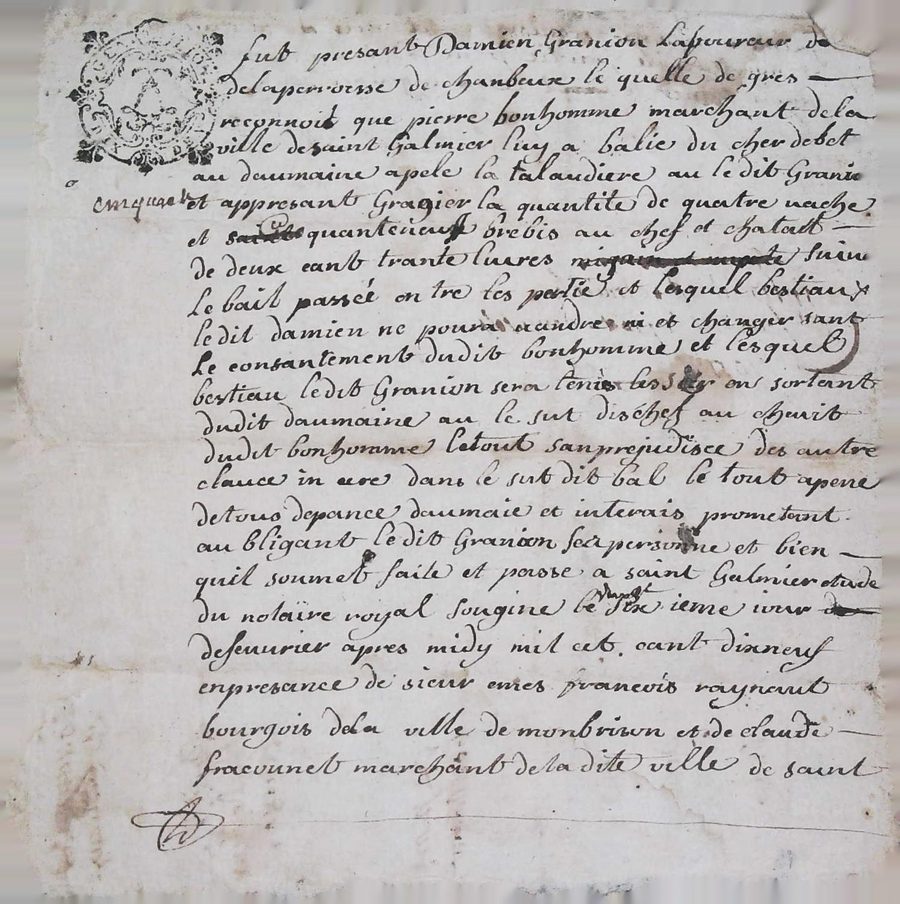 fut presant Damien Granion Laboureur de
delaperroesse de chanbeux le quelle de gres
reconnoit que pierre bonhomme marchant dela
ville desaint Galmier luy a balie du cher debet
au daumaine apele la talaudiere au le dit Granie
cinquante
et appresant Gragier la quantite de quatre vache
et quanteneuf brebis au chef et chatait
de deux cant trante livres suive
Le bail passée en tre les partie et lesquel bestiaux
le dit damien ne poura vandre ni et changer sant
Le consantement dudit bonhomme et lesquel
bestiau ledit Granion sera tenis lesser on sortant
dudit daumaine au le sut dischef au choit
dudit bonhomme letout sanprejudisce des autre
clauce in cere dans le sut dit bal le tout apene
detous depance daumaie et interais prometant
au bligant le dit Granion ses personne et bien
quil soumet faite et passe a saint Galmier etude
du notaire royal sougine le vingt six ieme iour
defevurier apres midy mil cet. cant dixneuf
enpresance de sieur emes francois raynaut
bourgois dela ville de monbrison et de claude
fracounet marchant de la dite ville de saint